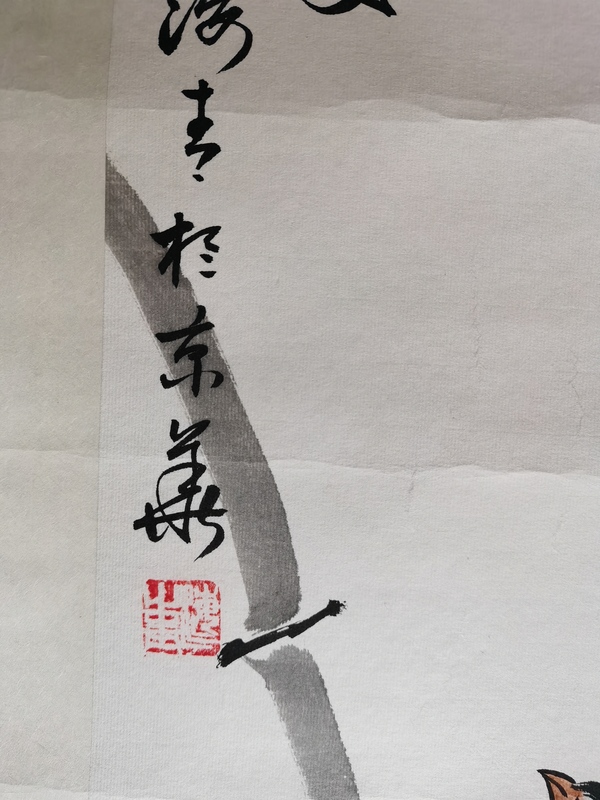 海青於京華